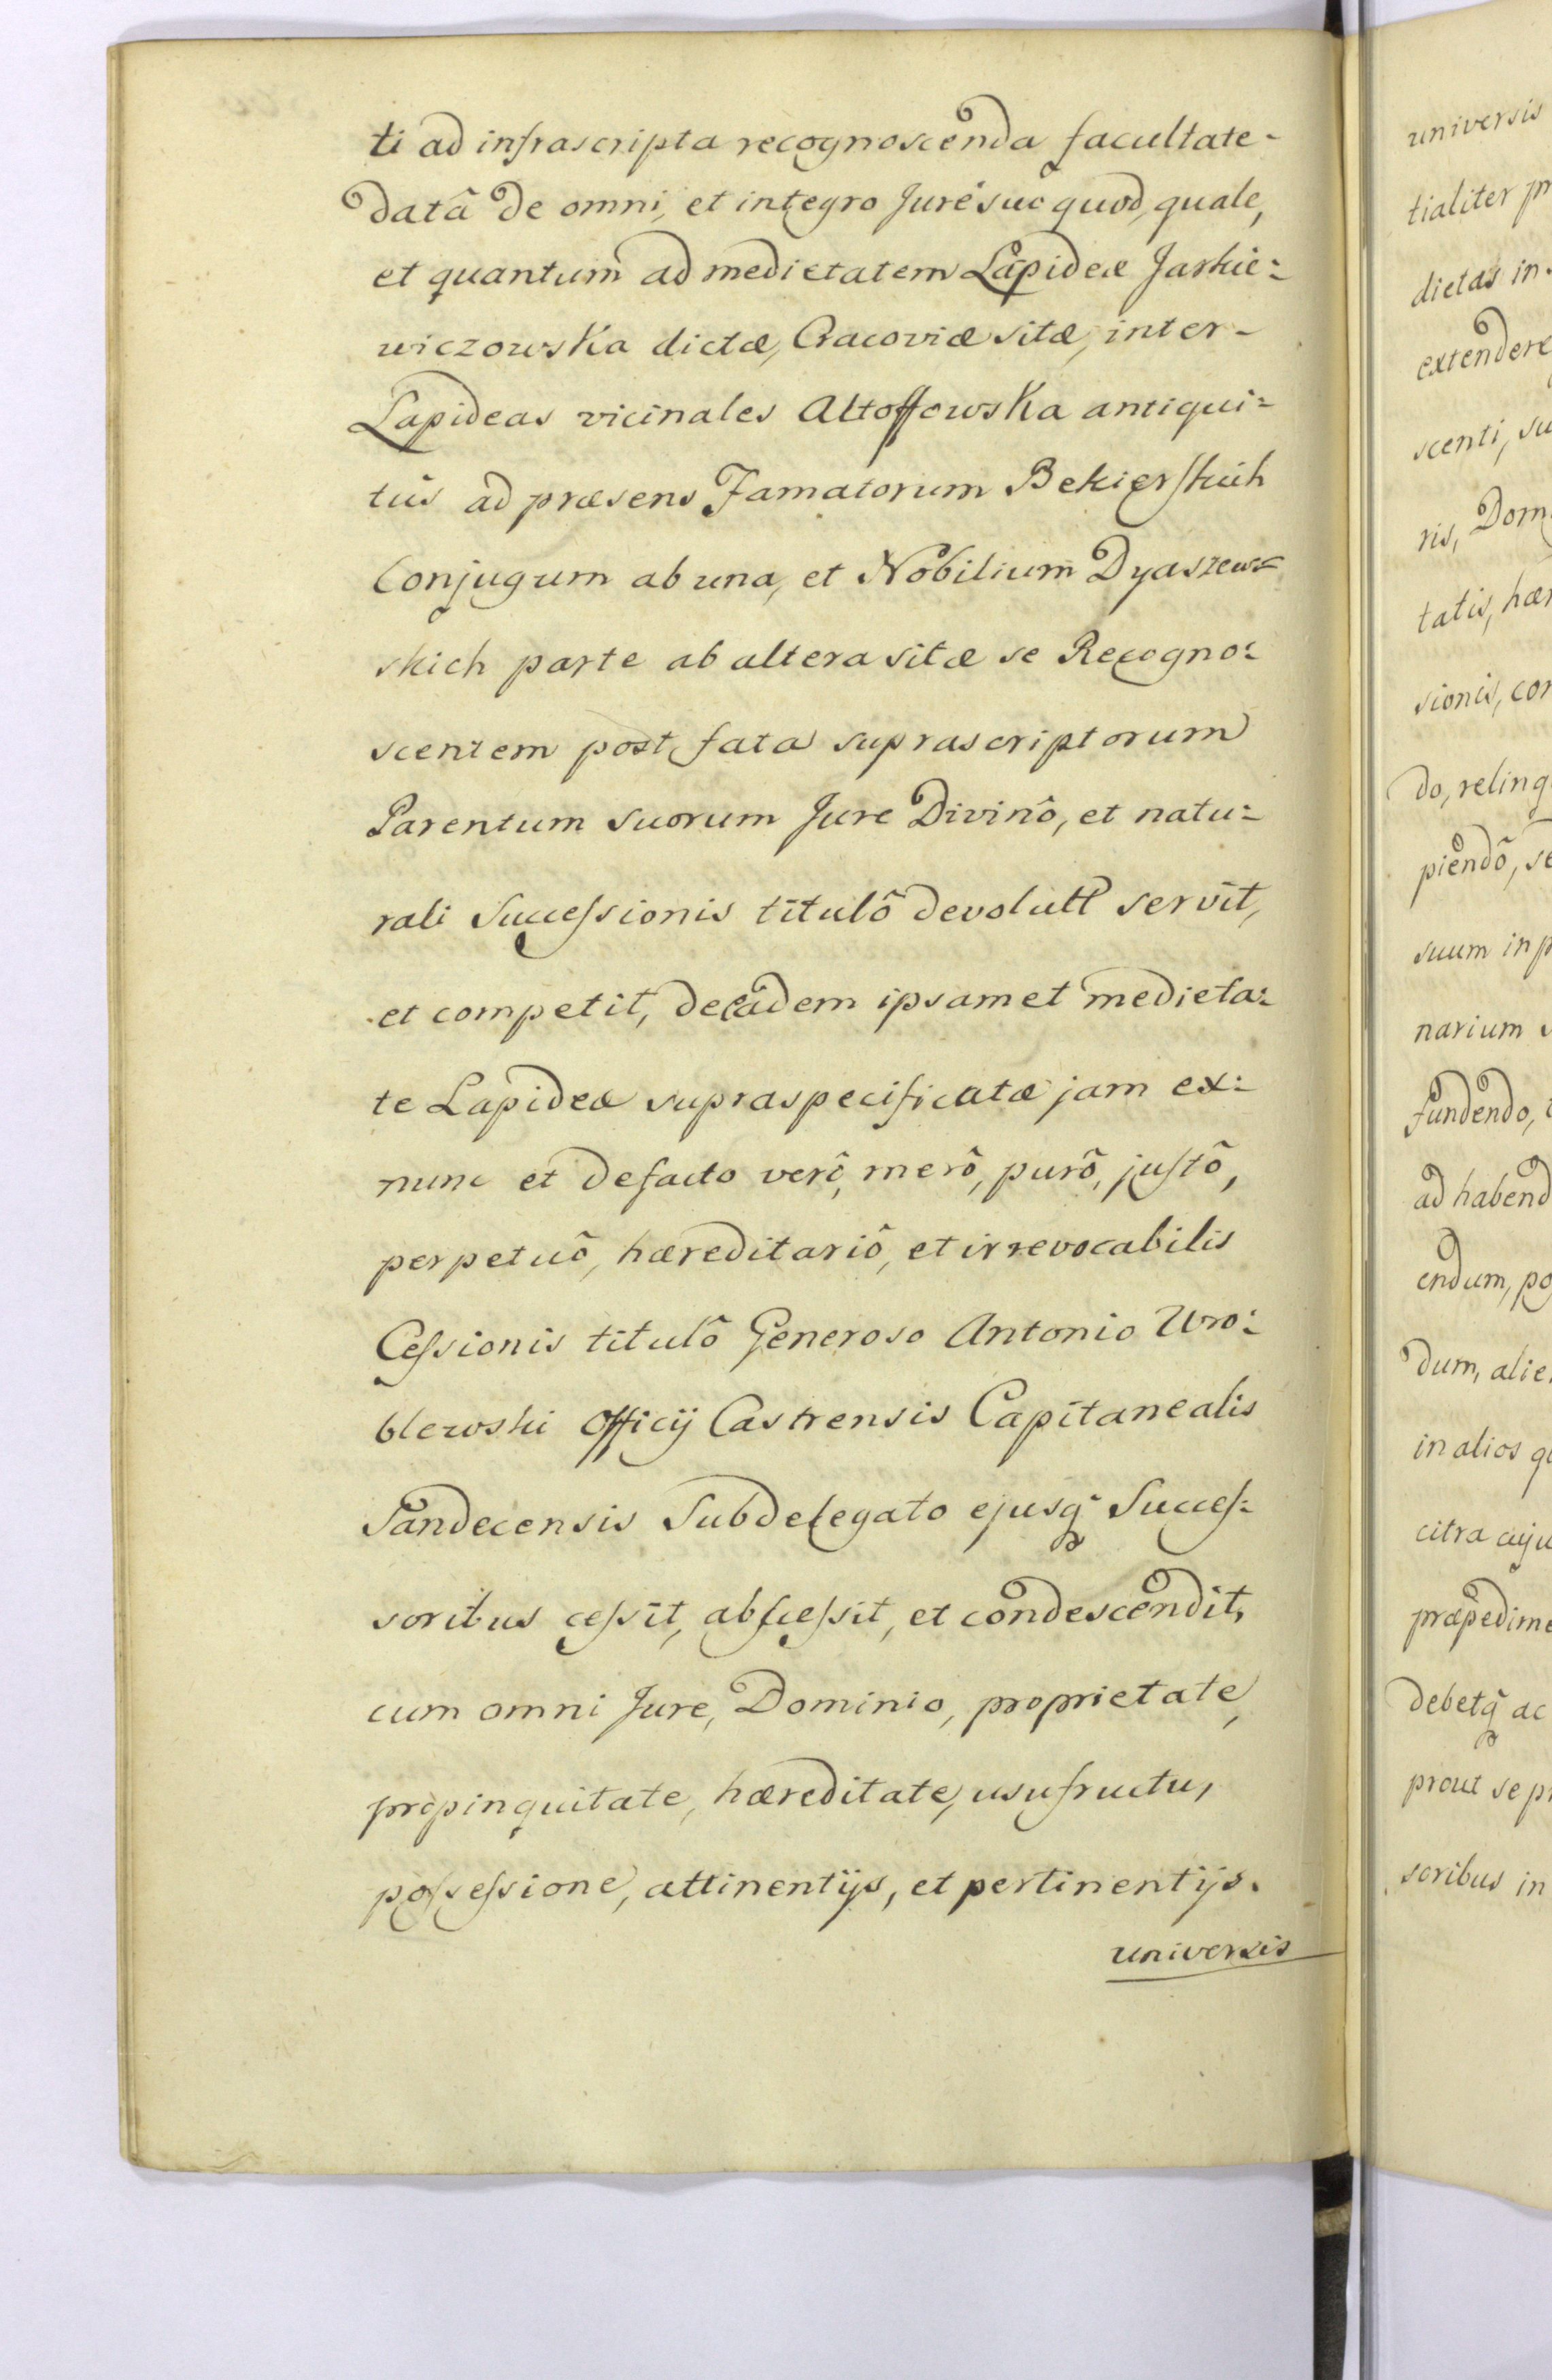 ti ad infrascripta recognoscenda facultate-
datâ de omni, et integro Jure suo quod, quale,
et quantum ad medietatem Lapideæ Jarkie=
wiczowska dictæ, Cracoviæ sitæ, inter-
Lapideas vicinales Altoffowska antiqui=
tus ad præsens Famatorum Bekierskich
Conjugum ab una, et Nobilium Dyaszew=
skich parte ab altera sitæ se Recogno=
scentem post fata suprascriptorum
Parentum suorum Jure Divinô, et natu=
rali Successionis titulô devolutt servit,
et competit, de eâdem ipsamet medieta=
te Lapideæ supraspecificatæ jam ex=
nunc et defacto verô, merô, purô, justô,
perpetuô, hæreditariô, et irrevocabilis
Cessionis titulô Generoso Antonio Wro=
blewski Officij Castrensis Capitanealis
Sandecensis Subdelegato ejusq̃ Succes=
soribus cessit, abscessit, et condescendit,
cum omni Jure, Dominio, proprietate,
propinquitate, hæreditate, usufructu,
possessione, attinentijs, et pertinentijs.
universis
universis
tialiter
dictas in
extendere
scenti,
ris,
tatis,
sionis,
do,
piendô,
suum in
narium
fundendo,
ad
endum,
dum,
in alios
citra
debetq̃ ac
prout se
soribus in